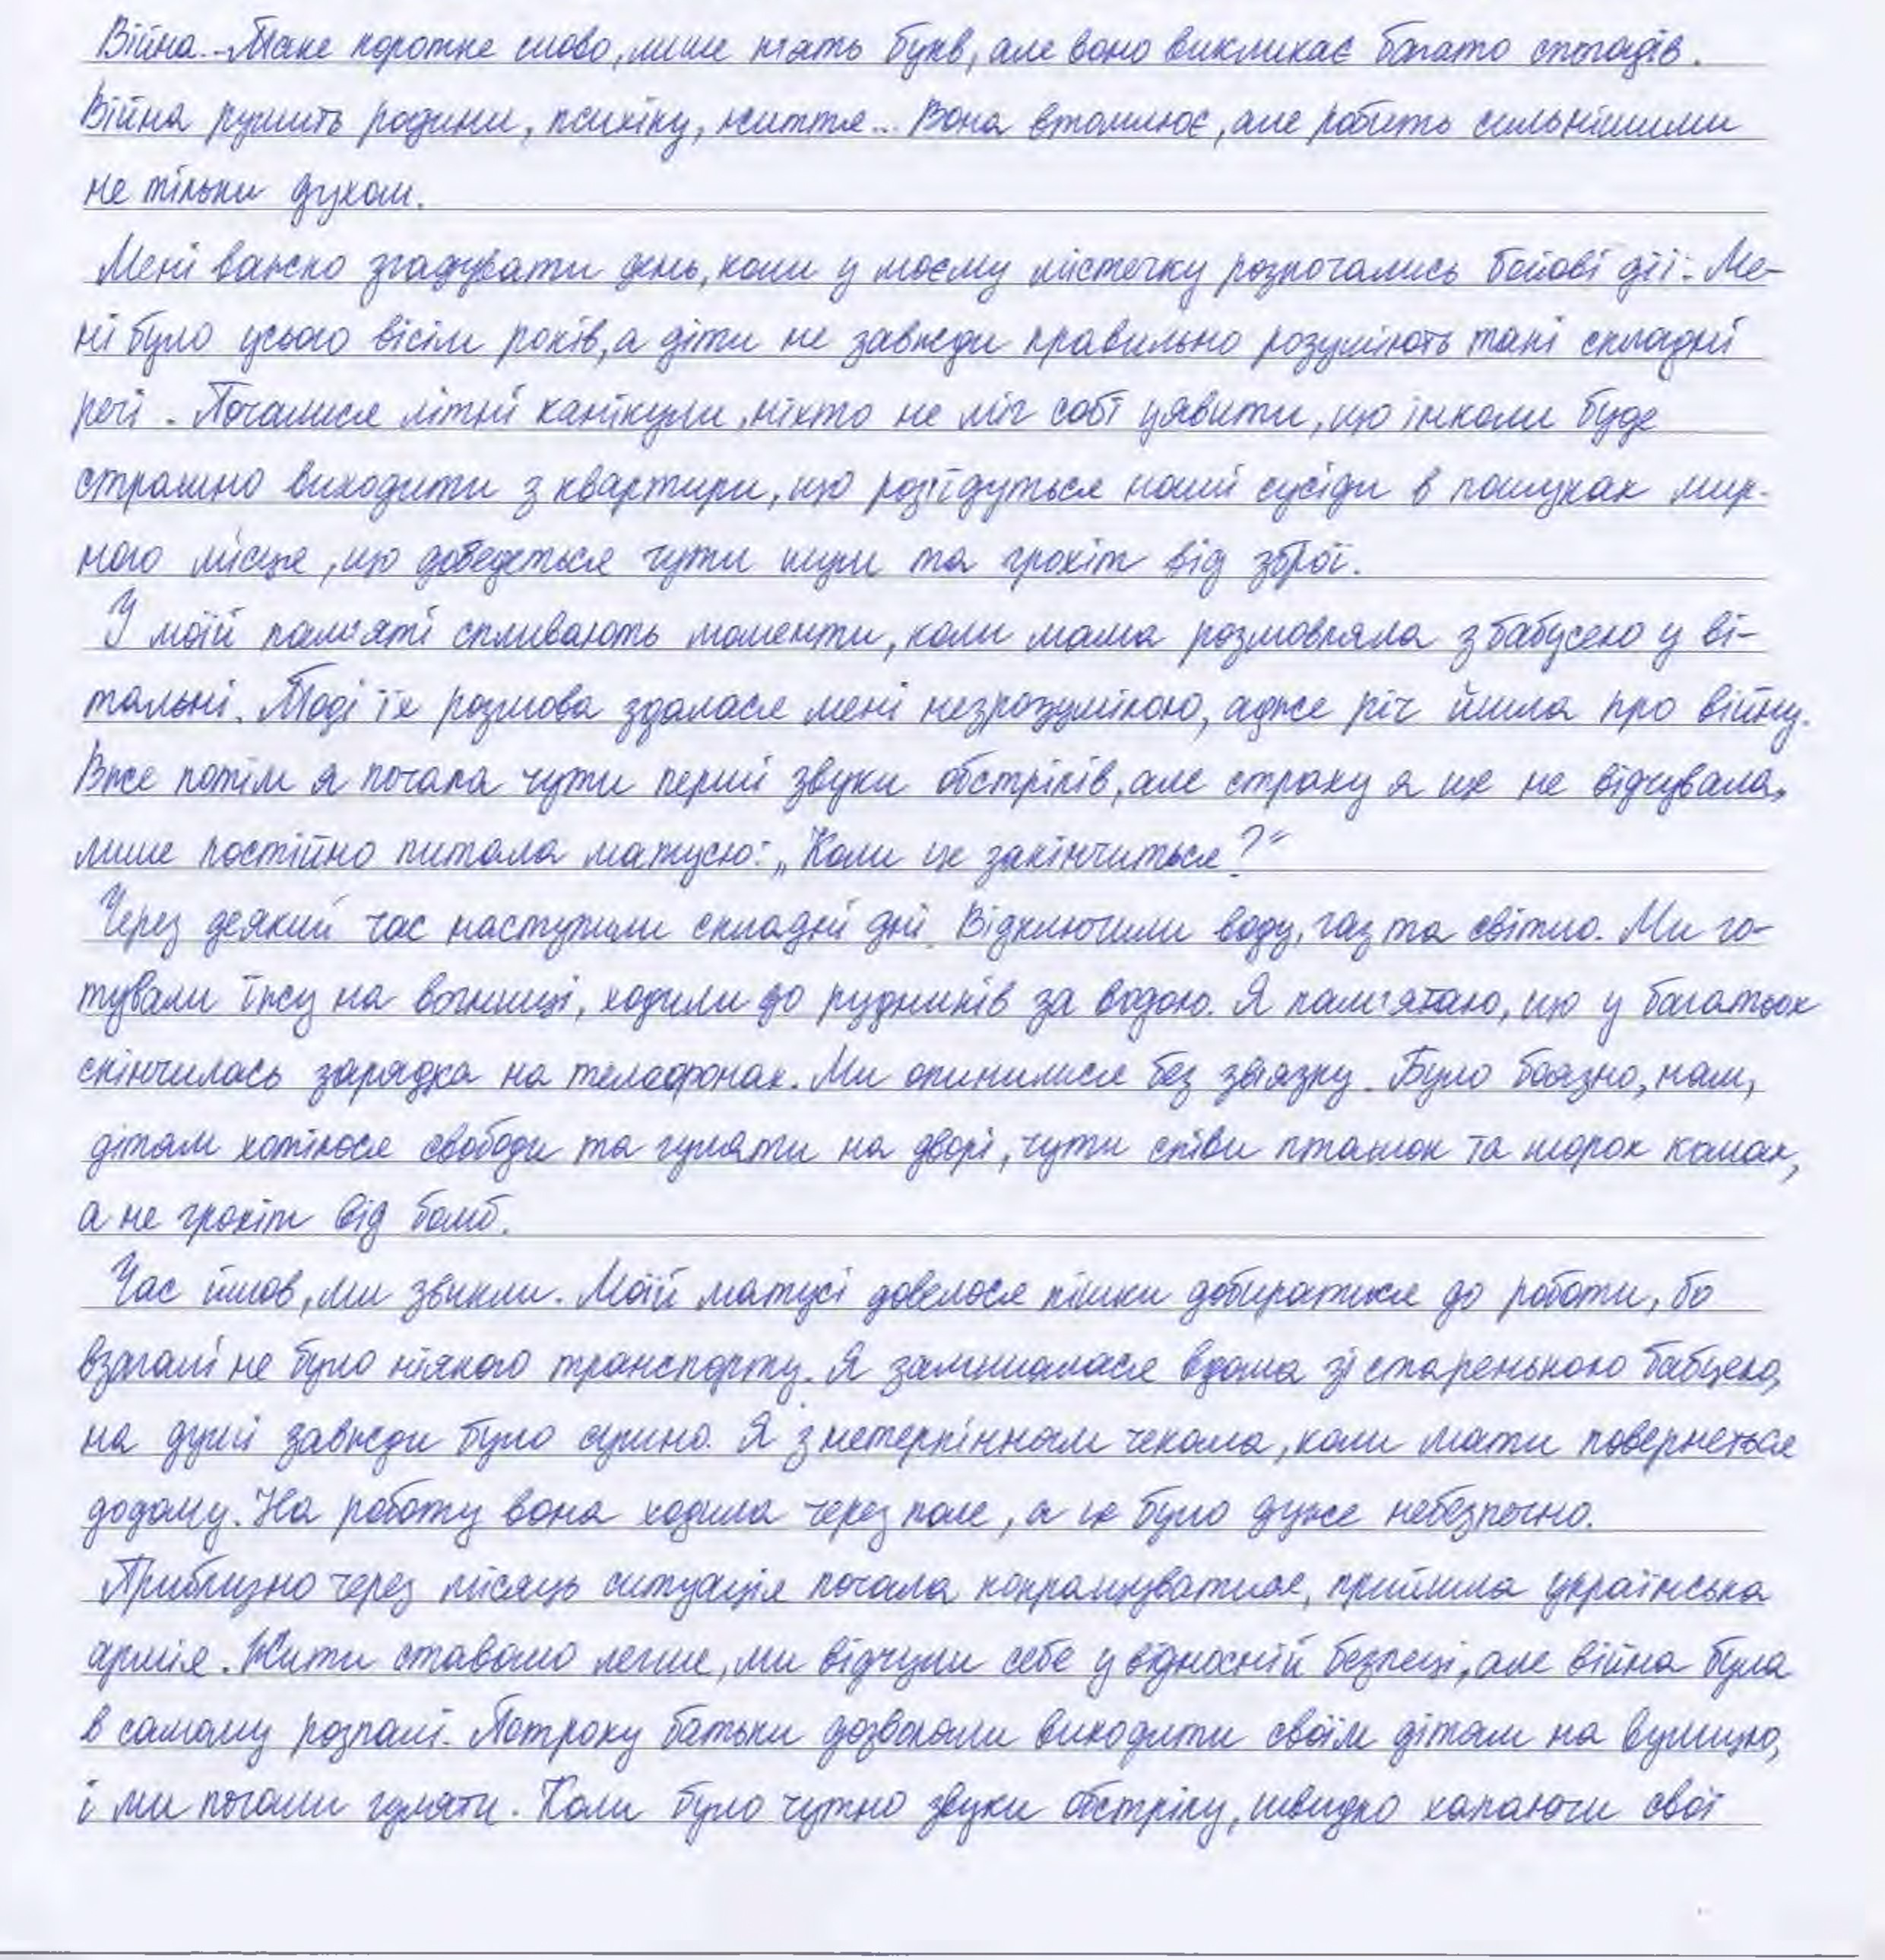 Війна... Таке коротке слово, лише п'ять букв, але воно викликає багато спогадів.
Війна рушить родини, психіку, життя... Вона втомлює, але робить сильнішими
не тільки духом.
Мені важко згадувати день, коли у моєму містечку розпочались бойові дії. Ме-
ні було усього вісім років, а діти не завжди правильно розуміють такі складні
речі. Почалися літні канікули, ніхто не міг собі уявити, що інколи буде
страшно виходити з квартири, що роз'їдуться наші сусіди в пошуках мир-
ного місця, що доведеться чути шум та грохіт від зброї.
У моїй пам'яті спливають моменти, коли мама розмовляла з бабусею у ві-
тальні. Тоді їх розмова здалася мені незрозумілою, адже річ йшла про війну.
Вже потім я почала чути перші звуки обстрілів, але страху я ще не відчувала,
лише постійно питала матусю: „Коли це закінчиться?“
Через деякий час наступили складні дні. Відключили воду, газ та світло. Ми го-
тували їжу на вогнищі, ходили до рудників за водою. Я пам'ятаю, що у багатьох
скінчилась зарядка на телефонах. Ми опинилися без зв'язку. Було боязно, нам,
дітям хотілося свободи та гуляти на дворі, чути співи пташок та шорох комах,
а не грохіт від бомб.
Час йшов, ми звикли. Моїй матусі довелося пішки добиратися до роботи, бо
взагалі не було ніякого транспорту. Я залишалася вдома зі старенькою бабцею,
на душі завжди було сумно. Я з нетерпінням чекала, коли мати повернеться
додому. На роботу вона ходила через поле, а це було дуже небезпечно.
Приблизно через місяць ситуація почала покращуватися, прийшла українська
армія. Жити ставало легше, ми відчули себе у відносній безпеці, але війна була
в самому розпалі. Потроху батьки дозволяли виходити своїм дітям на вулицю,
і ми почали гуляти. Коли було чутно звуки обстрілу, швидко хапаючи свої